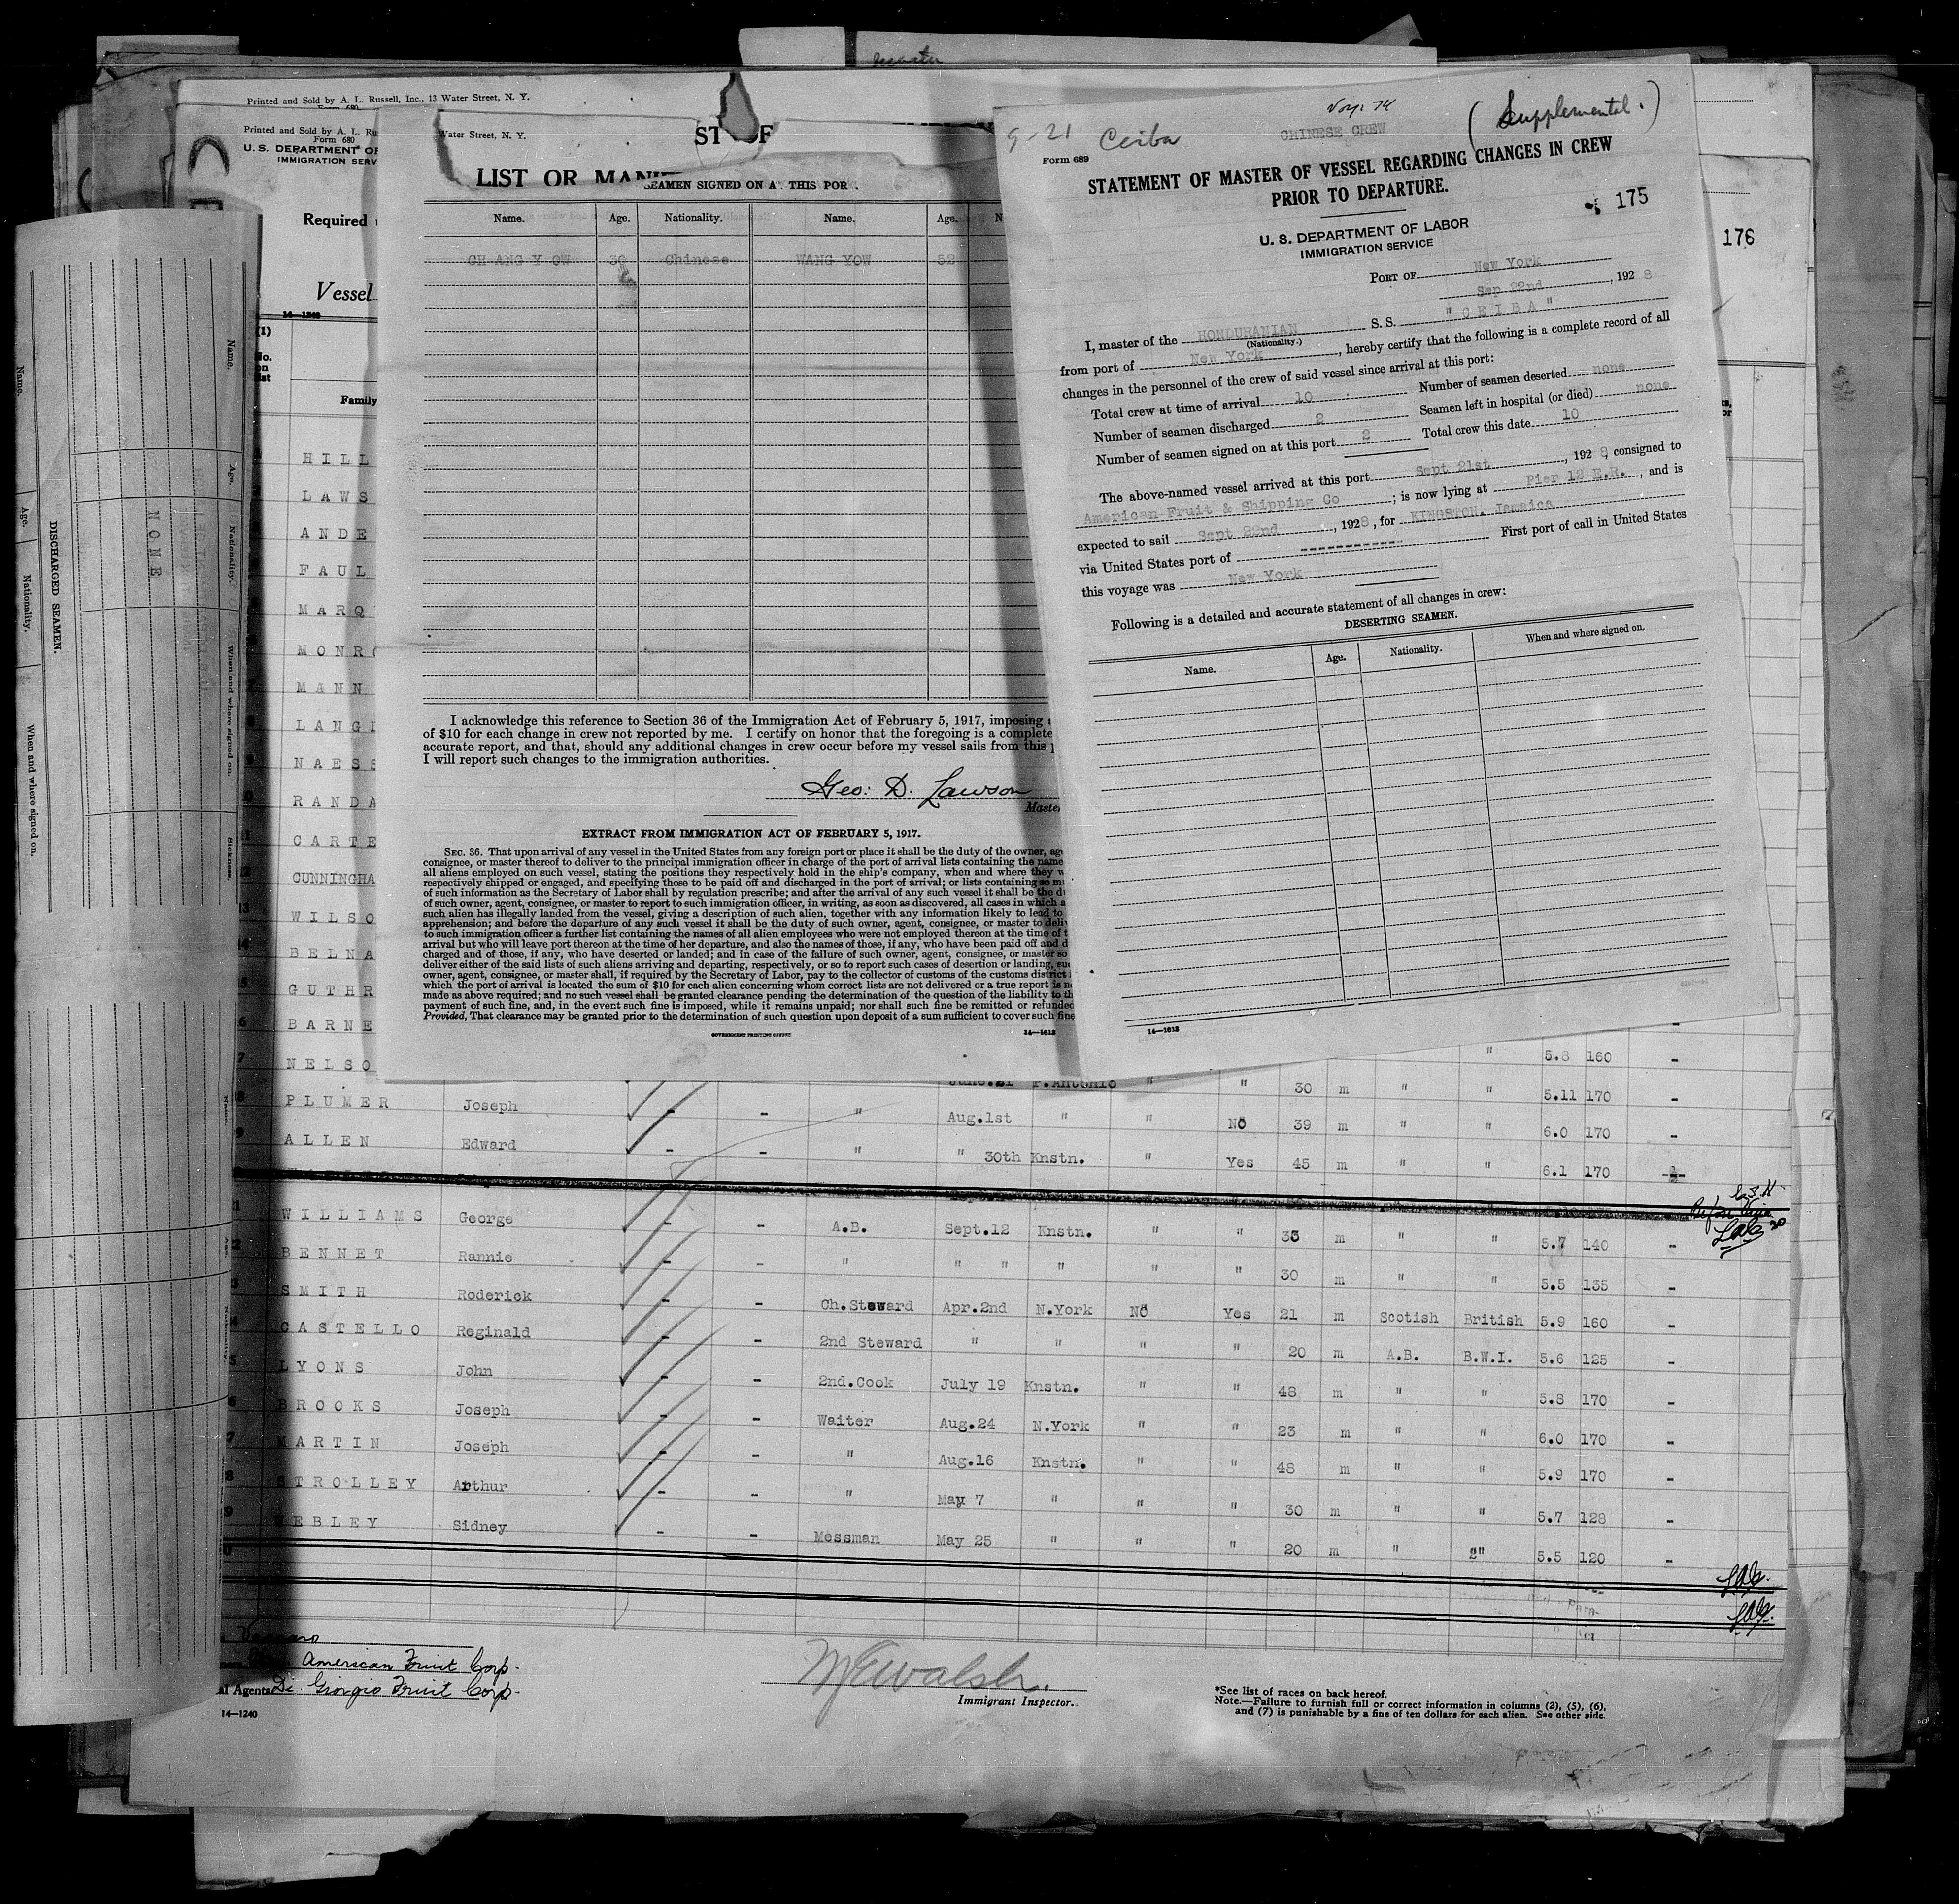 Master
Printed and Sold by A. L. Russell, Inc., 13 Water Street, N. Y.
Form 680
Printed and Sold by A. L. Ru
Form 680
U. S. DEPARTMENT OF
IMMIGRATION SERV
Required
Vessel
14—1240
(1)
No.
on
list
Family
HILL
LAWS
ANDE
FAUL
MARQ
MONRO
MANN
LANGI
NAESS
RANDA
CARTE
CUNNINGHA
WILSO
BELNA
GUTHR
BARNE
NELSO
Name.
Age.
Nationality.
When and where signed on.
DISCHARGED SEAMEN.
Name.
Age.
Nationality.
When and where signed on.
Sickness.
NONE
Water Street, N. Y.
ST OF
LIST OR MANI
SEAMEN SIGNED ON AT THIS POR
Name. Age. Nationality. Name. Age. N
CHANG YOW 30 Chinese WANG YOW 52
I acknowledge this reference to Section 36 of the Immigration Act of February 5, 1917, imposing
of $10 for each change in crew not reported by me. I certify on honor that the foregoing is a complete
accurate report, and that, should any additional changes in crew occur before my vessel sails from this
I will report such changes to the immigration authorities.
Geo: D. Lawson
Master
EXTRACT FROM IMMIGRATION ACT OF FEBRUARY 5, 1917.
SEC. 36. That upon arrival of any vessel in the United States from any foreign port or place it shall be the duty of the owner, age
consignee, or master thereof to deliver to the principal immigration officer in charge of the port of arrival lists containing the name
all aliens employed on such vessel, stating the positions they respectively hold in the ship's company, when and where they w
respectively shipped or engaged, and specifying those to be paid off and discharged in the port of arrival; or lists containing so mu
of such information as the Secretary of Labor shall by regulation prescribe; and after the arrival of any such vessel it shall be the du
of such owner, agent, consignee, or master to report to such immigration officer, in writing, as soon as discovered, all cases in which a
such alien has illegally landed from the vessel, giving a description of such alien, together with any information likely to lead to
apprehension; and before the departure of any such vessel it shall be the duty of such owner, agent, consignee, or master to deliv
to such immigration officer a further list containing the names of all alien employees who were not employed thereon at the time of t
arrival but who will leave port thereon at the time of her departure, and also the names of those, if any, who have been paid off and d
charged and of those, if any, who have deserted or landed; and in case of the failure of such owner, agent, consignee, or master so
deliver either of the said lists of such aliens arriving and departing, respectively, or so to report such cases of desertion or landing, suc
owner, agent, consignee, or master shall, if required by the Secretary of Labor, pay to the collector of customs of the customs district
which the port of arrival is located the sum of $10 for each alien concerning whom correct lists are not delivered or a true report is no
made as above required; and no such vessel shall be granted clearance pending the determination of the question of the liability to th
payment of such fine, and, in the event such fine is imposed, while it remains unpaid; nor shall such fine be remitted or refunded
Provided, That clearance may be granted prior to the determination of such question upon deposit of a sum sufficient to cover such fine
GOVERNMENT PRINTING OFFICE
14—1613
9-21 Ceiba
Voy. 74
CHINESE CREW
(Supplemental.)
Form 689
STATEMENT OF MASTER OF VESSEL REGARDING CHANGES IN CREW
PRIOR TO DEPARTURE.
175
176
U. S. DEPARTMENT OF LABOR
IMMIGRATION SERVICE
PORT OF New York
Sep 22nd, 1928
I, master of the HONDURANIAN S. S. "CEIBA"
(Nationality.)
from port of New York, hereby certify that the following is a complete record of all
changes in the personnel of the crew of said vessel since arrival at this port:
Total crew at time of arrival 10 Number of seamen deserted none
Number of seamen discharged 2 Seamen left in hospital (or died) none
Number of seamen signed on at this port 2 Total crew this date 10
The above-named vessel arrived at this port Sept 21st, 1928, consigned to
American Fruit & Shipping Co; is now lying at Pier 12 E.R., and is
expected to sail Sept 22nd, 1928, for KINGSTON. Jamaica
via United States port of ----------- First port of call in United States
this voyage was New York
Following is a detailed and accurate statement of all changes in crew:
DESERTING SEAMEN.
Name. Age. Nationality. When and where signed on.
14—1613
" 5.8 160 -
June.21 P.Antonio " " 30 m " " 5.11 170 -
PLUMER Joseph - - " Aug.1st " " No 39 m " " 6.0 170 -
ALLEN Edward - - " " 30th Knstn. " Yes 45 m " " 6.1 170 -
WILLIAMS George - - A.B. Sept.12 Knstn. " " 35 m " " 5.7 140 -
BENNET Rannie - - " " " " " " 30 m " " 5.5 135 -
SMITH Roderick - - Ch.Steward Apr.2nd N.York No Yes 21 m Scotish British 5.9 160 -
CASTELLO Reginald - - 2nd Steward " " " " 20 m A.B. B.W.I. 5.6 125 -
LYONS John - - 2nd.Cook July 19 Knstn. " " 48 m " " 5.8 170 -
BROOKS Joseph - - Waiter Aug.24 N.York " " 23 m " " 6.0 170 -
MARTIN Joseph - - " Aug.16 Knstn. " " 48 m " " 5.9 170 -
STROLLEY Arthur - - " May 7 " " " 30 m " " 5.7 128 -
WEBLEY Sidney - - Messman May 25 " " " 20 m " " 5.5 120 -
American Fruit Corp.
al Agents Di. Giorgio Fruit Corp.
14—1240
M E Walsh.
Immigrant Inspector.
*See list of races on back hereof.
Note.—Failure to furnish full or correct information in columns (2), (5), (6),
and (7) is punishable by a fine of ten dollars for each alien. See other side.